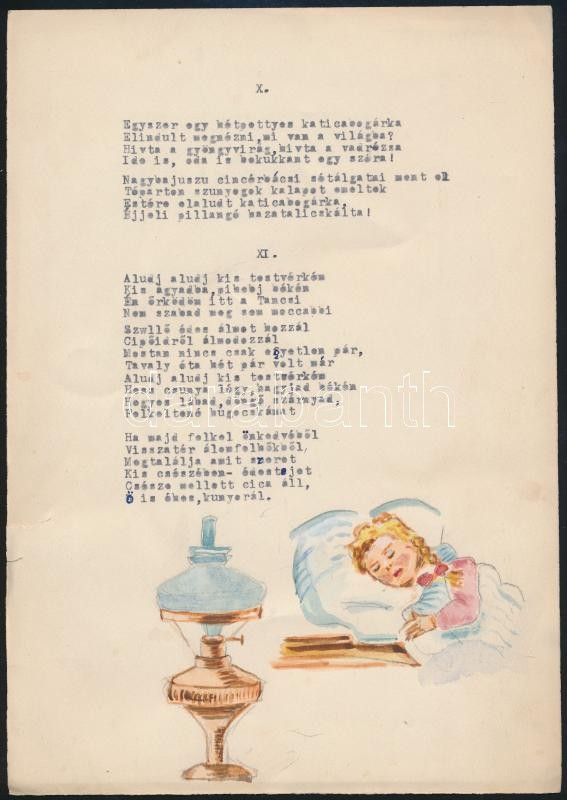 X.
Egyszer egy hétpettyes katicabogárka
Elindult megnézni,mi van a világba?
Hivta a gyöngyvirág,hivta a vadrózsa
Ide is, oda is bekukkant egy szóra!
Nagybajuszu cincérbácsi sétálgatni ment el
Tóparton szunyogok kalapot emeltek
Estére elaludt katicabogárka,
Éjjeli pillangó hazatalicskálta!
XI.
Aludj aludj kis testvérkém
Kis ágyadba,pihebj békén
Én őrködöm itt a Tancsi
Nem szabad meg sem moccabbi
Szwllő édes álmot hozzál
Cipőidről álmodozzál
Mostan nincs csak egyetlen pár,
Tavaly óta hét pár volt már
Aludj aludj kis testvérkém
Hess csunya légy,hagyjad békén
Hegyes lábad,döngő szárnyad,
Felkeltené hugocskámat
Ha majd felkel önkedvéből
Visszatér álomfelhőkből,
Megtalálja amit szeret
Kis csészében- édestejet
Csésze mellett cica áll,
Ő is éhes,kunyorál.
darabanth